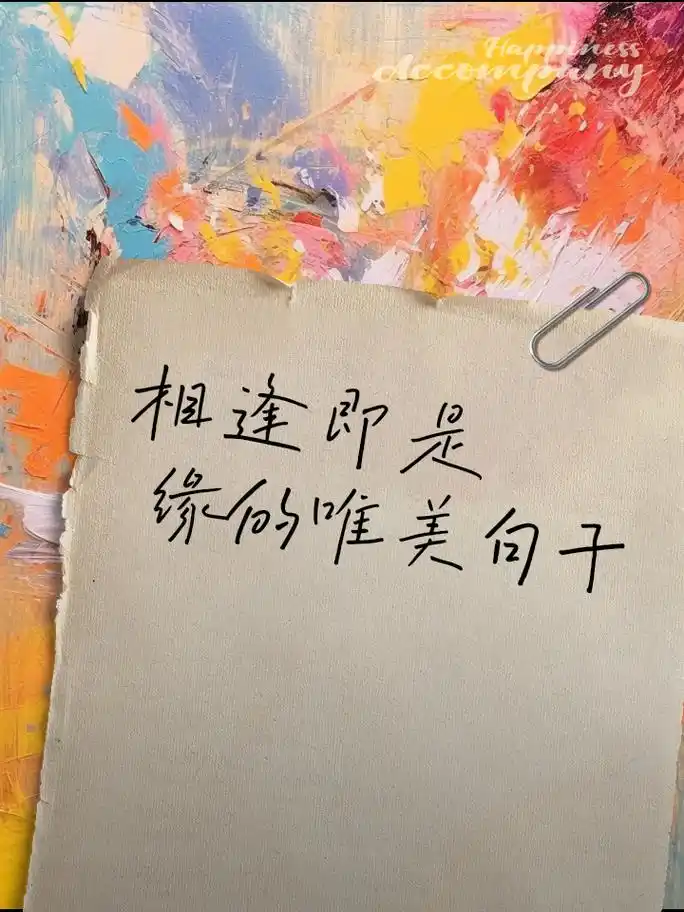 Happiness
Accompany
相逢即是
缘的唯美句子